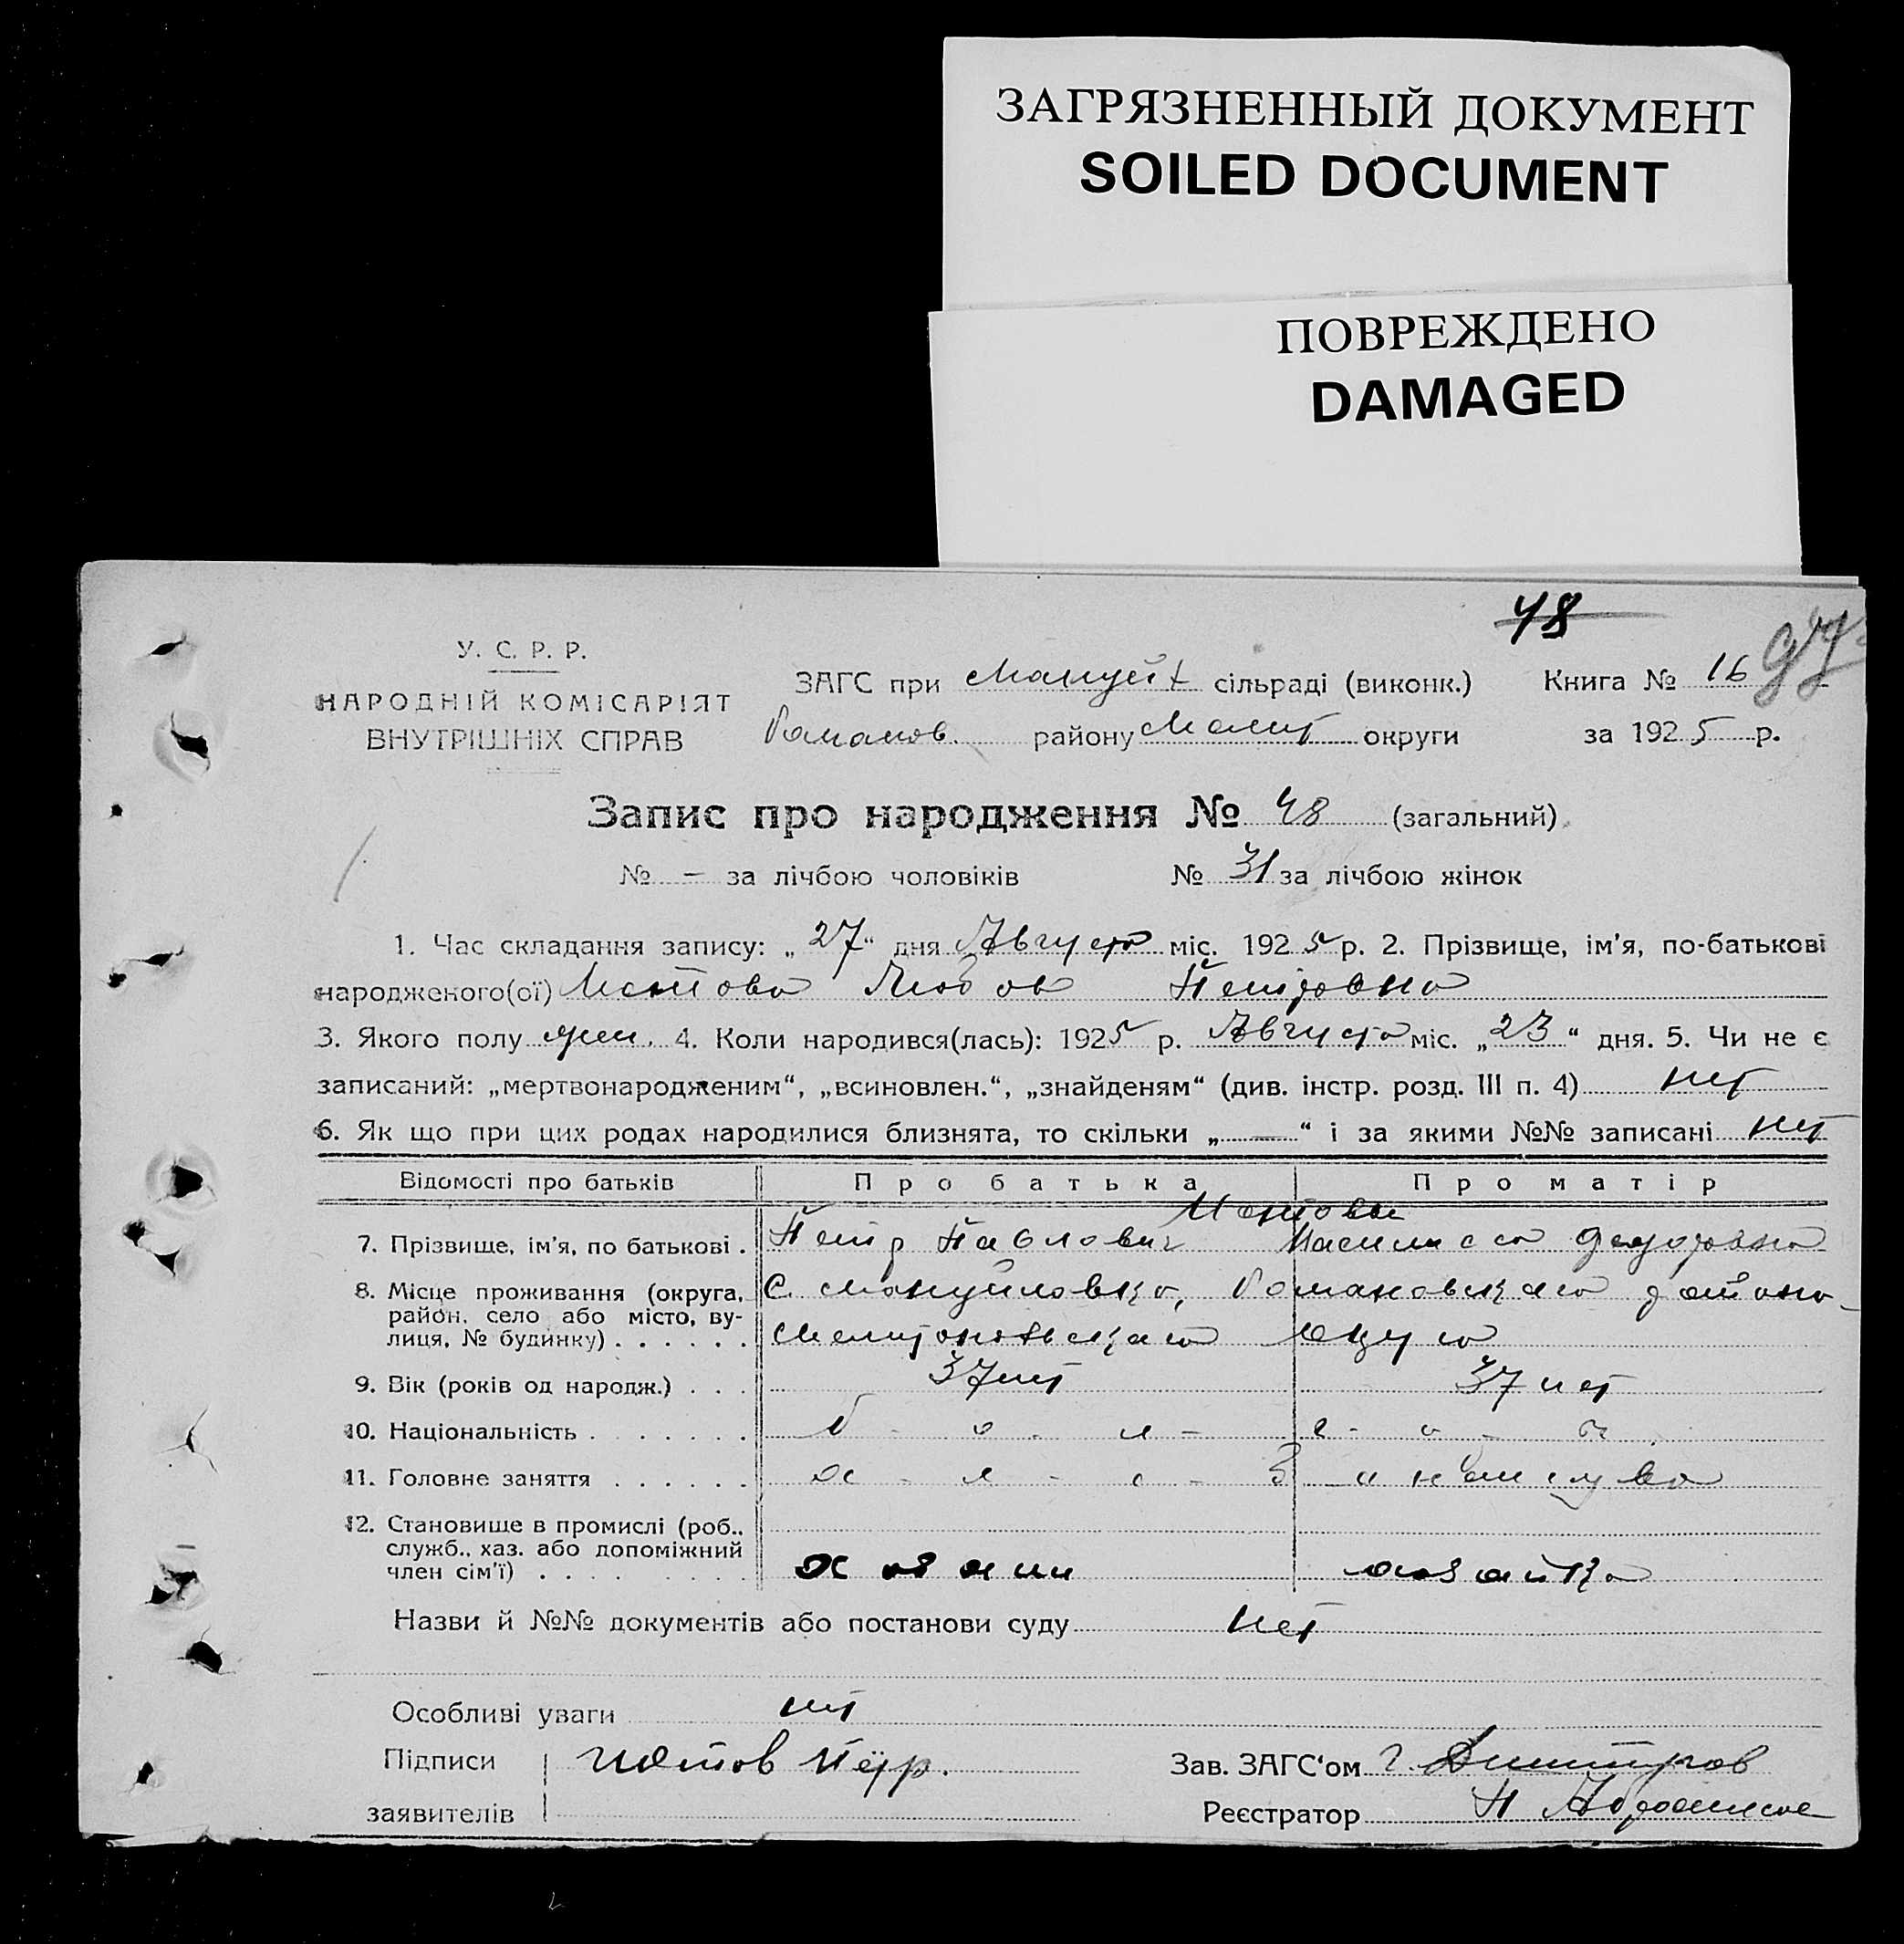 ЗАГРЯЗНЕННЫЙ ДОКУМЕНТ
SOILED DOCUMENT
ПОВРЕЖДЕНО
DAMAGED
48
У. С. Р. Р.
НАРОДНІЙ КОМІСАРІЯТ
ВНУТРІШНІХ СПРАВ
ЗАГС при Мануй сільраді (виконк.) Книга № 16
Романов. району Мелит округи за 1925 р.
Запис про народження № 48 (загальний)
№ – за лічбою чоловіків № 31 за лічбою жінок
1. Час складання запису: „27“ дня Августа міс. 1925 р. 2. Прізвище, ім’я, по-батькові
народженого(ої) Любов Петровна
3. Якого полу жен. 4. Коли народився(лась): 1925 р. Августа міс. „23“ дня. 5. Чи не є
записаний: „мертвонародженим“, „всиновлен.“, „знайденям“ (див. інстр. розд. III п. 4) нет
6. Як що при цих родах народилися близнята, то скільки „—“ і за якими №№ записані нет
Відомості про батьків Про батька Про матір
7. Прізвище, ім’я, по батькові . Петр Павлович Василиса Федоровна
8. Місце проживання (округа, С. Мануйловка, Романовскаго района
район, село або місто, ву-
лиця, № будинку) . . . . . . Мелитопольскаго
9. Вік (років од народж.) . . . 37 лет 37 лет
10. Національність . . . . . . . б - о - л - г - а -
11. Головне заняття . . . . . . х - л - е - б
12. Становище в промислі (роб.,
служб., хаз. або допоміжний
член сім’ї) . . . . . . . . . хозяин хозяйка
Назви й №№ документів або постанови суду нет
Особливі уваги нет
Підписи Пётр. Зав. ЗАГС‘ом Г. Димитров
заявителів Реєстратор